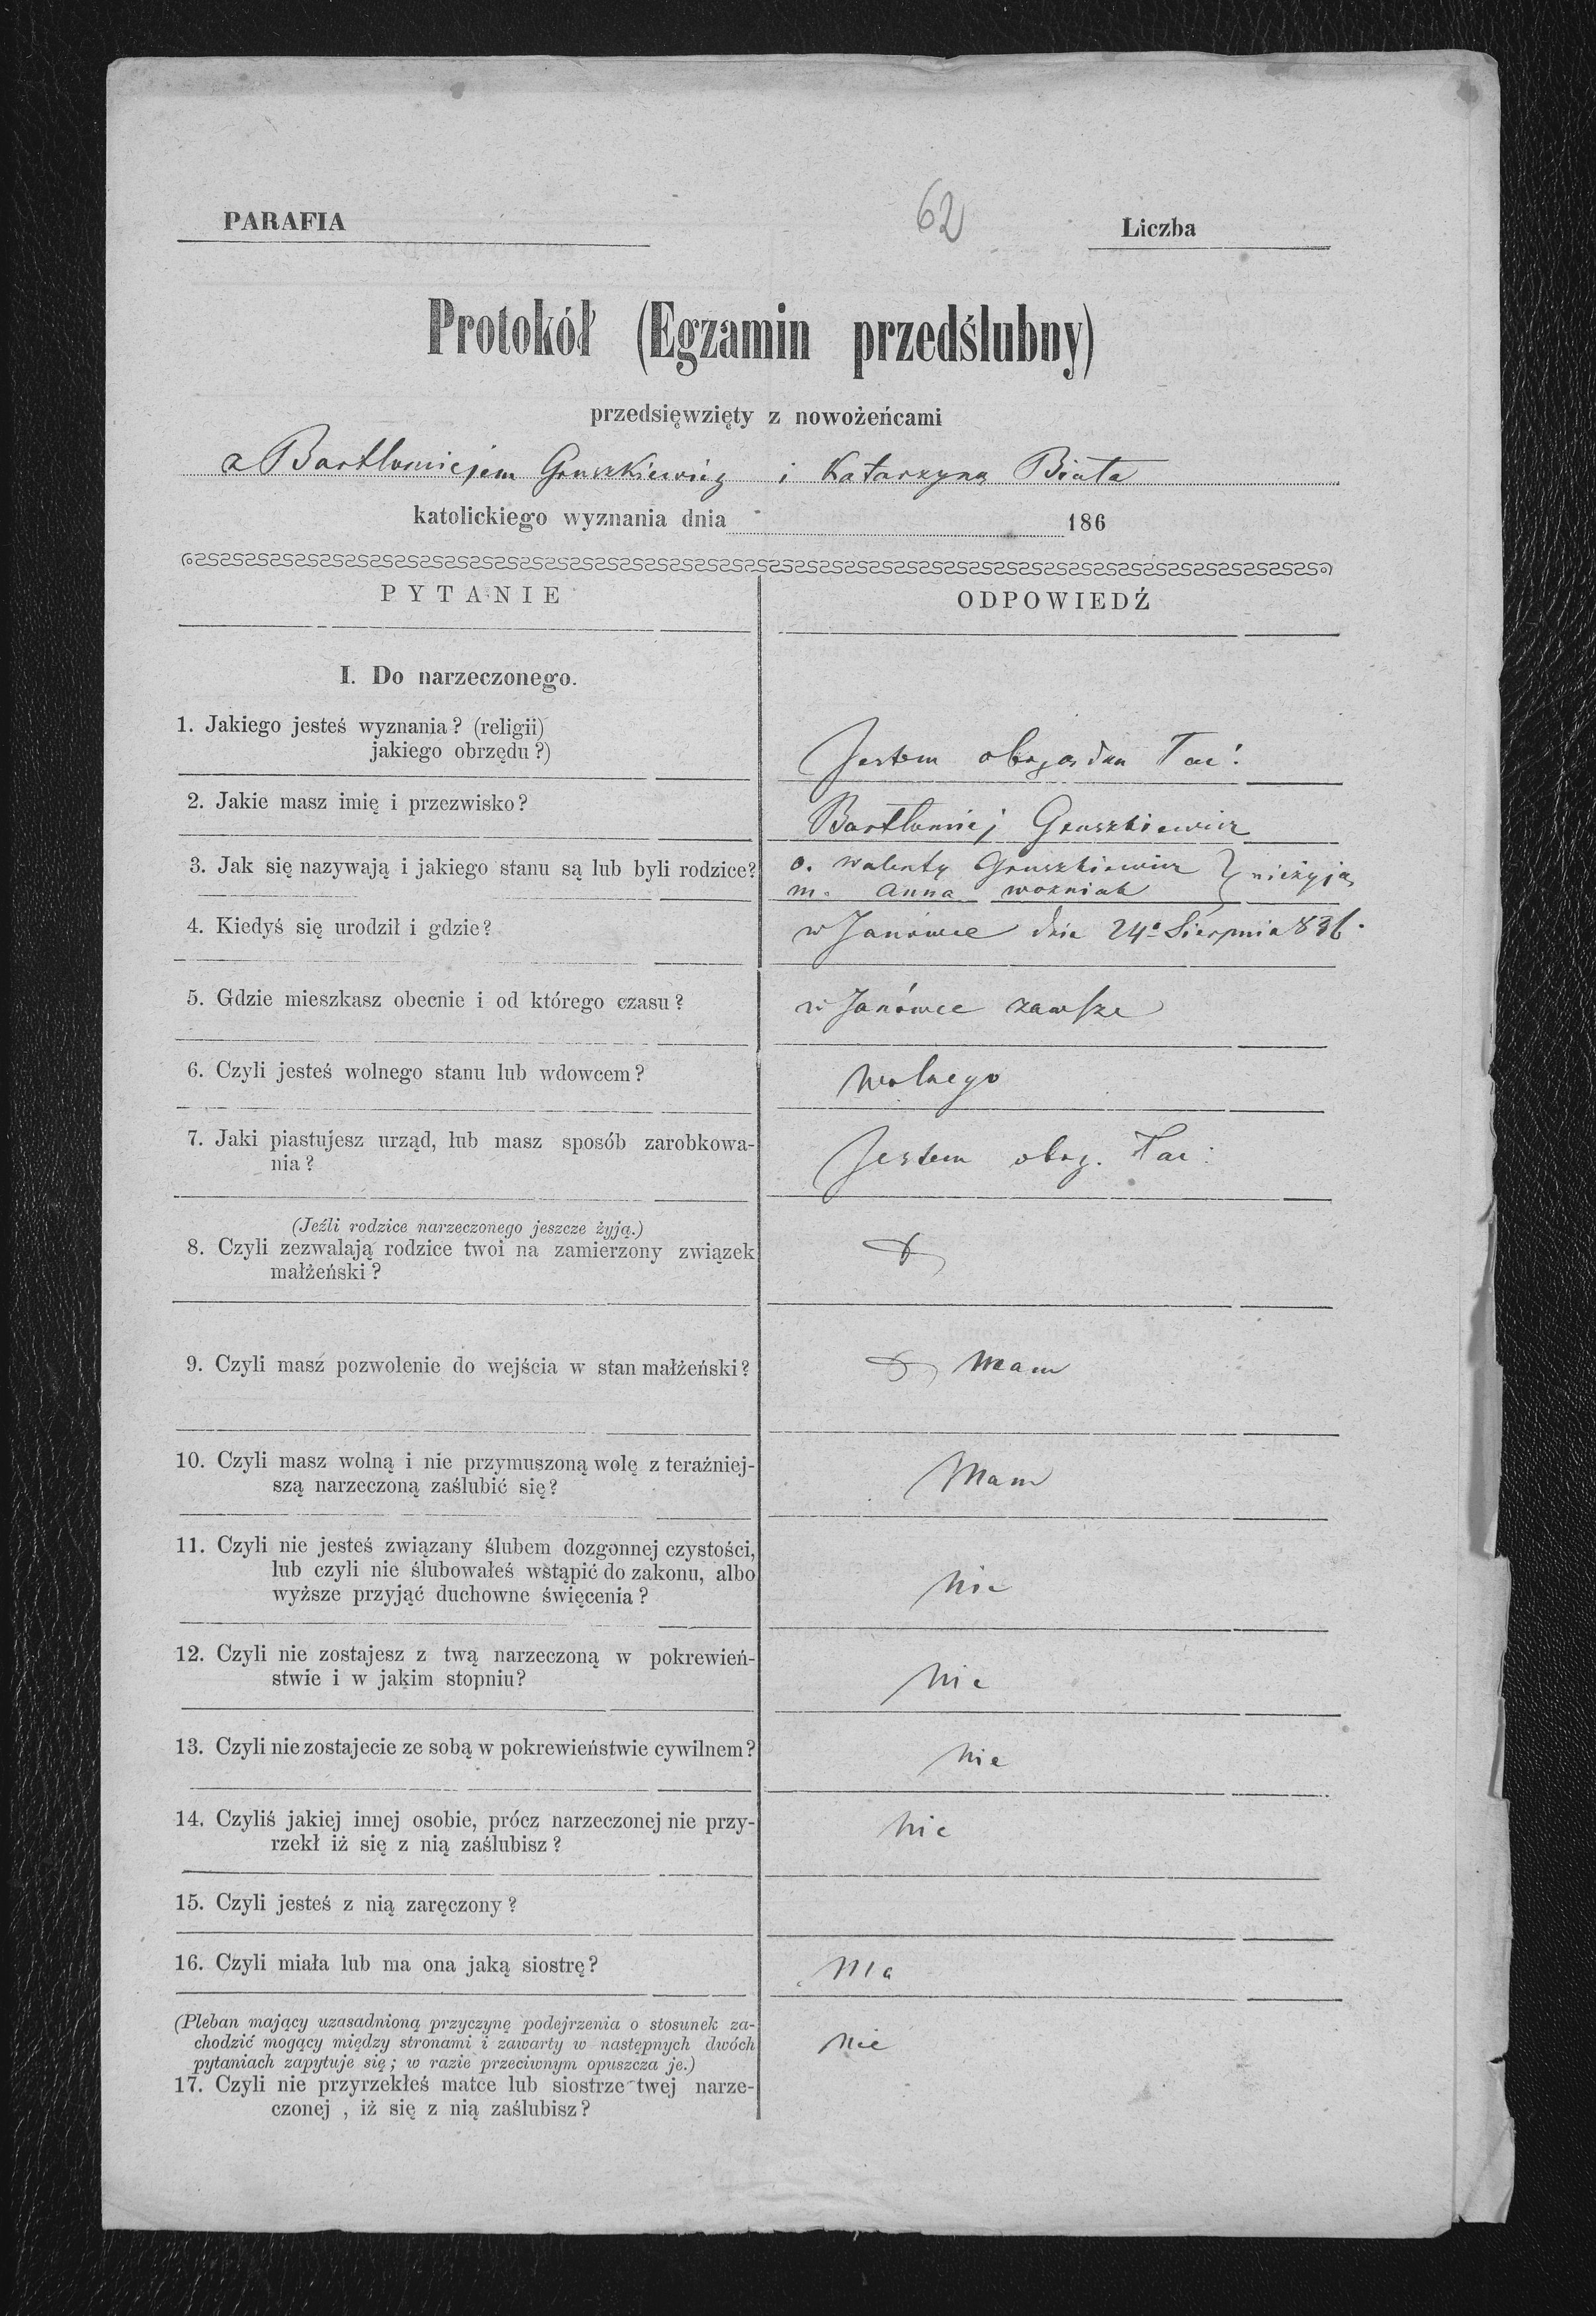 PARAFIA
62
Liczba
Protokół (Egzamin przedślubny)
przedsięwzięty z nowożeńcami
z Bartłomiejem Gruszkiewicz i Katarzyną Biała
katolickiego wyznania dnia 186
PYTANIE
ODPOWIEDŹ
I. Do narzeczonego.
1. Jakiego jesteś wyznania? (religii)
jakiego obrzędu?)
Jestem obrządku łać:
2. Jakie masz imię i przezwisko?
Bartłomiej Gruszkiewicz
3. Jak się nazywają i jakiego stanu są lub byli rodzice?
o. Walenty Gruszkiewicz } nieżyją
m. Anna Wozniak
4. Kiedyś się urodził i gdzie?
w Janówce dnia 24º Sierpnia 836.
5. Gdzie mieszkasz obecnie i od którego czasu?
w Janówce zawsze
6. Czyli jesteś wolnego stanu lub wdowcem?
Wolnego
7. Jaki piastujesz urząd, lub masz sposób zarobkowa-
nia?
Jestem obrz. łać:
(Jeźli rodzice narzeczonego jeszcze żyją.)
8. Czyli zezwalają rodzice twoi na zamierzony związek
małżeński?
9. Czyli masz pozwolenie do wejścia w stan małżeński?
Mam
10. Czyli masz wolną i nie przymuszoną wolę z teraźniej-
szą narzeczoną zaślubić się?
Mam
11. Czyli nie jesteś związany ślubem dozgonnej czystości,
lub czyli nie ślubowałeś wstąpić do zakonu, albo
wyższe przyjąć duchowne święcenia?
Nie
12. Czyli nie zostajesz z twą narzeczoną w pokrewień-
stwie i w jakim stopniu?
Nie
13. Czyli nie zostajecie ze sobą w pokrewieństwie cywilnem?
Nie
14. Czyliś jakiej innej osobie, prócz narzeczonej nie przy-
rzekł iż się z nią zaślubisz?
Nie
15. Czyli jesteś z nią zaręczony?
16. Czyli miała lub ma ona jaką siostrę?
Ma
(Pleban mający uzasadnioną przyczynę podejrzenia o stosunek za-
chodzić mogący między stronami i zawarty w następnych dwóch
pytaniach zapytuje się; w razie przeciwnym opuszcza je.)
Nie
17. Czyli nie przyrzekłeś matce lub siostrze twej narze-
czonej, iż się z nią zaślubisz?